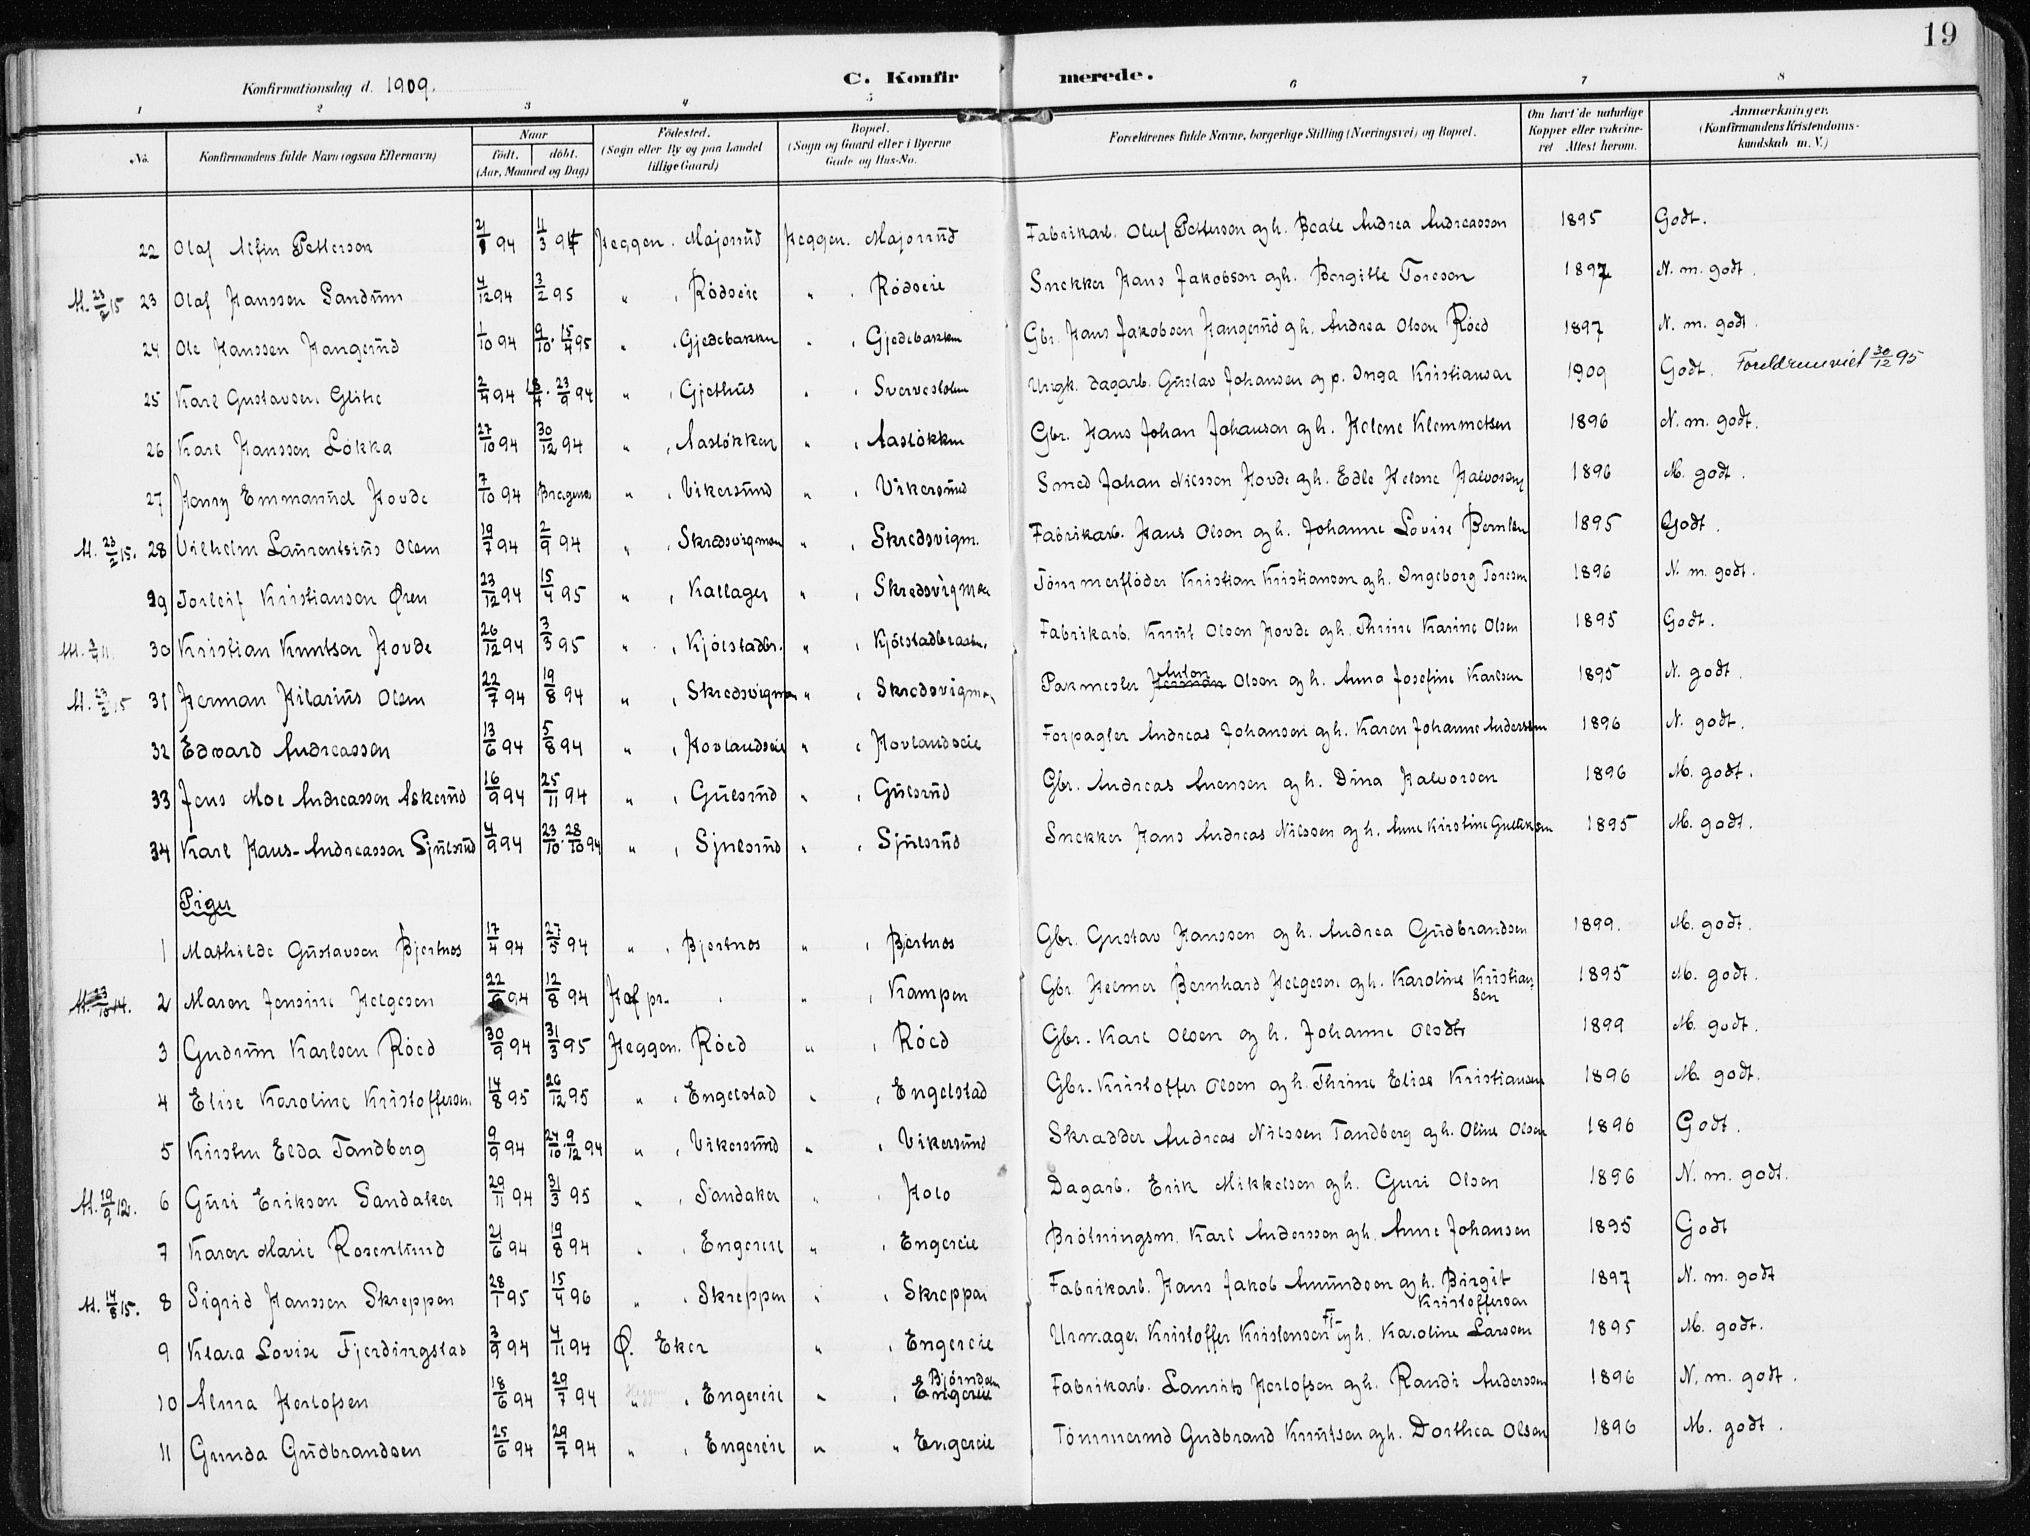 19
Konfirmationsdag d. 1909.
C. Konfirmerede.
1 2 3 4 5 6 7 8
No.
Konfirmandens fulde Navn (ogsaa Efternavn)
Naar
født. døbt.
(Aar, Maaned og Dag)
Fødested.
(Sogn eller By og paa Landet
tillige Gaard)
Bopæl.
(Sogn og Gaard eller i Byerne
Gade og Hus-No.
Forældrenes fulde Navne, borgerlige Stilling (Næringsvei) og Bopæl.
Om havt de naturlige
Kopper eller vakcine-
ret Attest herom.
Anmærkninger.
(Konfirmandens Kristendoms-
kundskab m. V.)
22 Olaf Alfin Petterson 94 4/3 94 Heggen. Majorrud Heggen. Majorrud Fabrikarb. Oluf Petterson og h. Beate Andrea Andreasson 1895 Godt.
M. 23/2 15 23 Olaf Hanssen Sandum 4/12 94 3/2 95 " , Rødseie " , Rødseie Snekker Hans Jakobson og h. Bergitte Toreson 1897 N. m. godt.
24 Ole Hanssen Hangerud 1/10 94 9/10. 15/4 95 " , Gjedebakken " , Gjedebakken Gbr. Hans Jakobsen Hangerud og h. Andrea Olsen Röed 1897 N. m. godt.
25 Karl Gustavsen Glitre 2/4 94 23/9 94 " , Gjethus " , Sversvestolen Ungk. dagarb. Gustav Johansen og p. Inga Kristiansen 1909 Godt. Foreldrene viet 30/12 95
26 Karl Hanssen Løkka 27/10 94 30/12 94 " , Aasløkken " , Aasløkken Gbr. Hans Johan Johanson og h. Helene Klemmetsen 1896 N. m. godt.
27 Henry Emmanuel Hovde 7/10 94 Bragernes " , Vikersund " , Vikersund Smed Johan Nilssen Hovde og h. Edle Helene Halvorsen 1896 M. godt.
M. 23/2 15. 28 Vilhelm Laurentsius Olsen 19/7 94 2/9 94 " , Skredsvigmoen " , Skredsvigm. Fabrikarb. Hans Olson og h. Johanne Lovise Berntsen 1895 Godt.
29 Torleif Kristianson Øren 23/12 94 15/4 95 " , Kallager " , Skredsvigmoen Tømmerfløder Kristian Kristianson og h. Ingeborg Toresen 1896 N. m. godt.
30 Kristian Knutson Hovde 26/12 94 3/3 95 " , Kjölstadbr. " , Kjölstadbraaten. Fabrikarb. Knut Olson Hovde og h. Thrine Karine Olsen 1895 Godt.
M. 23/2 15 31 Herman Hilarius Olsen 22/7 94 19/8 94 " , Skredsvigmoen " , Skredsvigmoen Pakmester Herman Anton Olson og h. Anna Josefine Karlsen 1895 N. godt.
32 Edward Andreassen 13/6 94 5/8 94 " , Hovlandseie " , Hovlandseie Forpagter Andreas Johanson og h. Karen Johanne Andersen 1896 N. godt.
33 Jens Moe Andreassen Askerud 16/9 94 25/11 94 " , Gulsrud " , Gulsrud Gbr. Andreas Avensen og h. Dina Halvorsen 1896 M. godt.
34 Karl Hans-Andreasson Sjulsrud 4/9 94 23/10. 28/10 94 " , Sjulsrud " , Sjulsrud Snekker Hans Andreas Nilssen og h. Anne Kirstine Gulliksen 1895 M. godt.
Piger
1 Mathilde Gustavsen Bjertnes 17/4 94 27/5 94 " , Bjertnes " , Bjertnes Gbr. Gustav Hanssen og h. Andrea Gudbrandsen 1899. M. godt.
M. 23/10 14. 2 Maren Jensine Helgesen 22/6 94 12/8 94 Hof pr. " , Kampen Gbr. Helmer Bernhard Helgesen og h. Karoline Kristiansen 1895 M. godt.
3 Gudrun Karlsen Röed 30/9 94 31/3 95 Heggen. Röed " , Röed Gbr. Karl Olsen og h. Johanne Olsdtr 1899 M. godt.
4 Elise Karoline Kristofferson. 14/8 95 26/12 95 " , Engelstad " , Engelstad Gbr. Kristoffer Olsen og h. Thrine Elise Kristiansen 1896 M. godt.
5 Kirsten Elda Tandberg 9/9 94 24/10. 9/12 94 " , Vikersund " , Vikersund Skrædder Andreas Nilssen Tandberg og h. Oline Olsen 1896 Godt.
M. 19/9 12. 6 Guri Erikson Sandaker 29/11 94 31/3 95 " , Sandaker " , Holo Dagarb. Erik Mikkelsen og h. Guri Olsen 1896 N. m. godt.
7 Karen Marie Rosenlund 21/6 94 19/8 94 " , Engereie " , Engereie Brötningsm. Karl Andersson og h. Anne Johansen 1895 Godt
M. 14/8 15. 8 Sigrid Hanssen Skreppen 28/1 95 15/4 96 " , Skreppen " , Skreppen Fabrikarb. Hans Jakob Amundson og h. Birgit Kristofferson 1897 N. m. godt
9 Klara Lovise Fjerdingstad 3/9 94 4/11 94 Ø. Eker " , Engereie Urmager Kristoffer Kristensen Fj- og h. Karoline Larsen 1895 M. godt.
10 Alma Herlofsen 18/6 94 29/7 94 " , Engereie " , Engereie Bjørndalen Fabrikarb. Laurits Herlofsen og h. Randi Andersson 1896 N. m. godt.
11 Gunda Gudbrandsen 25/6 94 29/7 94 " , Engereie " " Engereie Tömmermd Gudbrand Knutsen og h. Dorthea Olsen 1896 M. godt.